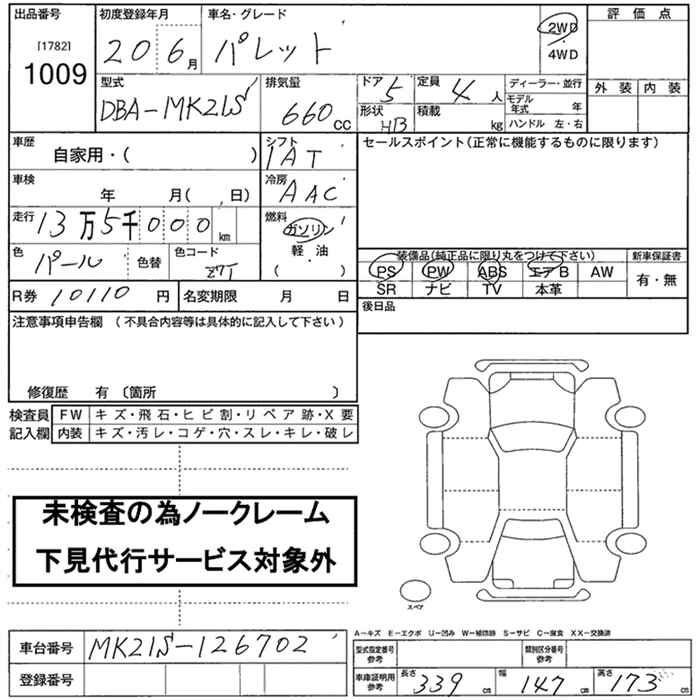 出品番号 初度登録年月 車名・グレード 2WD 評価点
[1782] 20 6月 パレット 4WD
1009
型式 排気量 ドア 5 定員 4人 ディーラー・並行 外装 内装
DBA-MK21S 660cc 形状 HB 積載 kg モデル年式 年
ハンドル 左・右
車歴 シフト セールスポイント(正常に機能するものに限ります)
自家用・( ) IAT
車検 冷房
年 月( 日) AAC
走行 13万5千000km 燃料
ガソリン
軽・油
( )
色 パール 色替 色コード Z7T
装備品(純正品に限り丸をつけて下さい) 新車保証書
PS PW ABS エアB AW 有・無
SR ナビ TV 本革
R券 10110円 名変期限 月 日 後日品
注意事項申告欄 (不具合内容等は具体的に記入して下さい)
修復歴 有〔箇所 〕
検査員 FW キズ・飛石・ヒビ割・リペア跡・X要
記入欄 内装 キズ・汚レ・コゲ・穴・スレ・キレ・破レ
未検査の為ノークレーム
下見代行サービス対象外
スペア
A-キズ E-エクボ U-凹み W-補修跡 S-サビ C-腐食 XX-交換済
車台番号 MK21S-126702 型式指定番号 参考 類別区分番号 参考
登録番号 車庫証明用 参考 長さ 339cm 幅 147cm 高さ 173cm